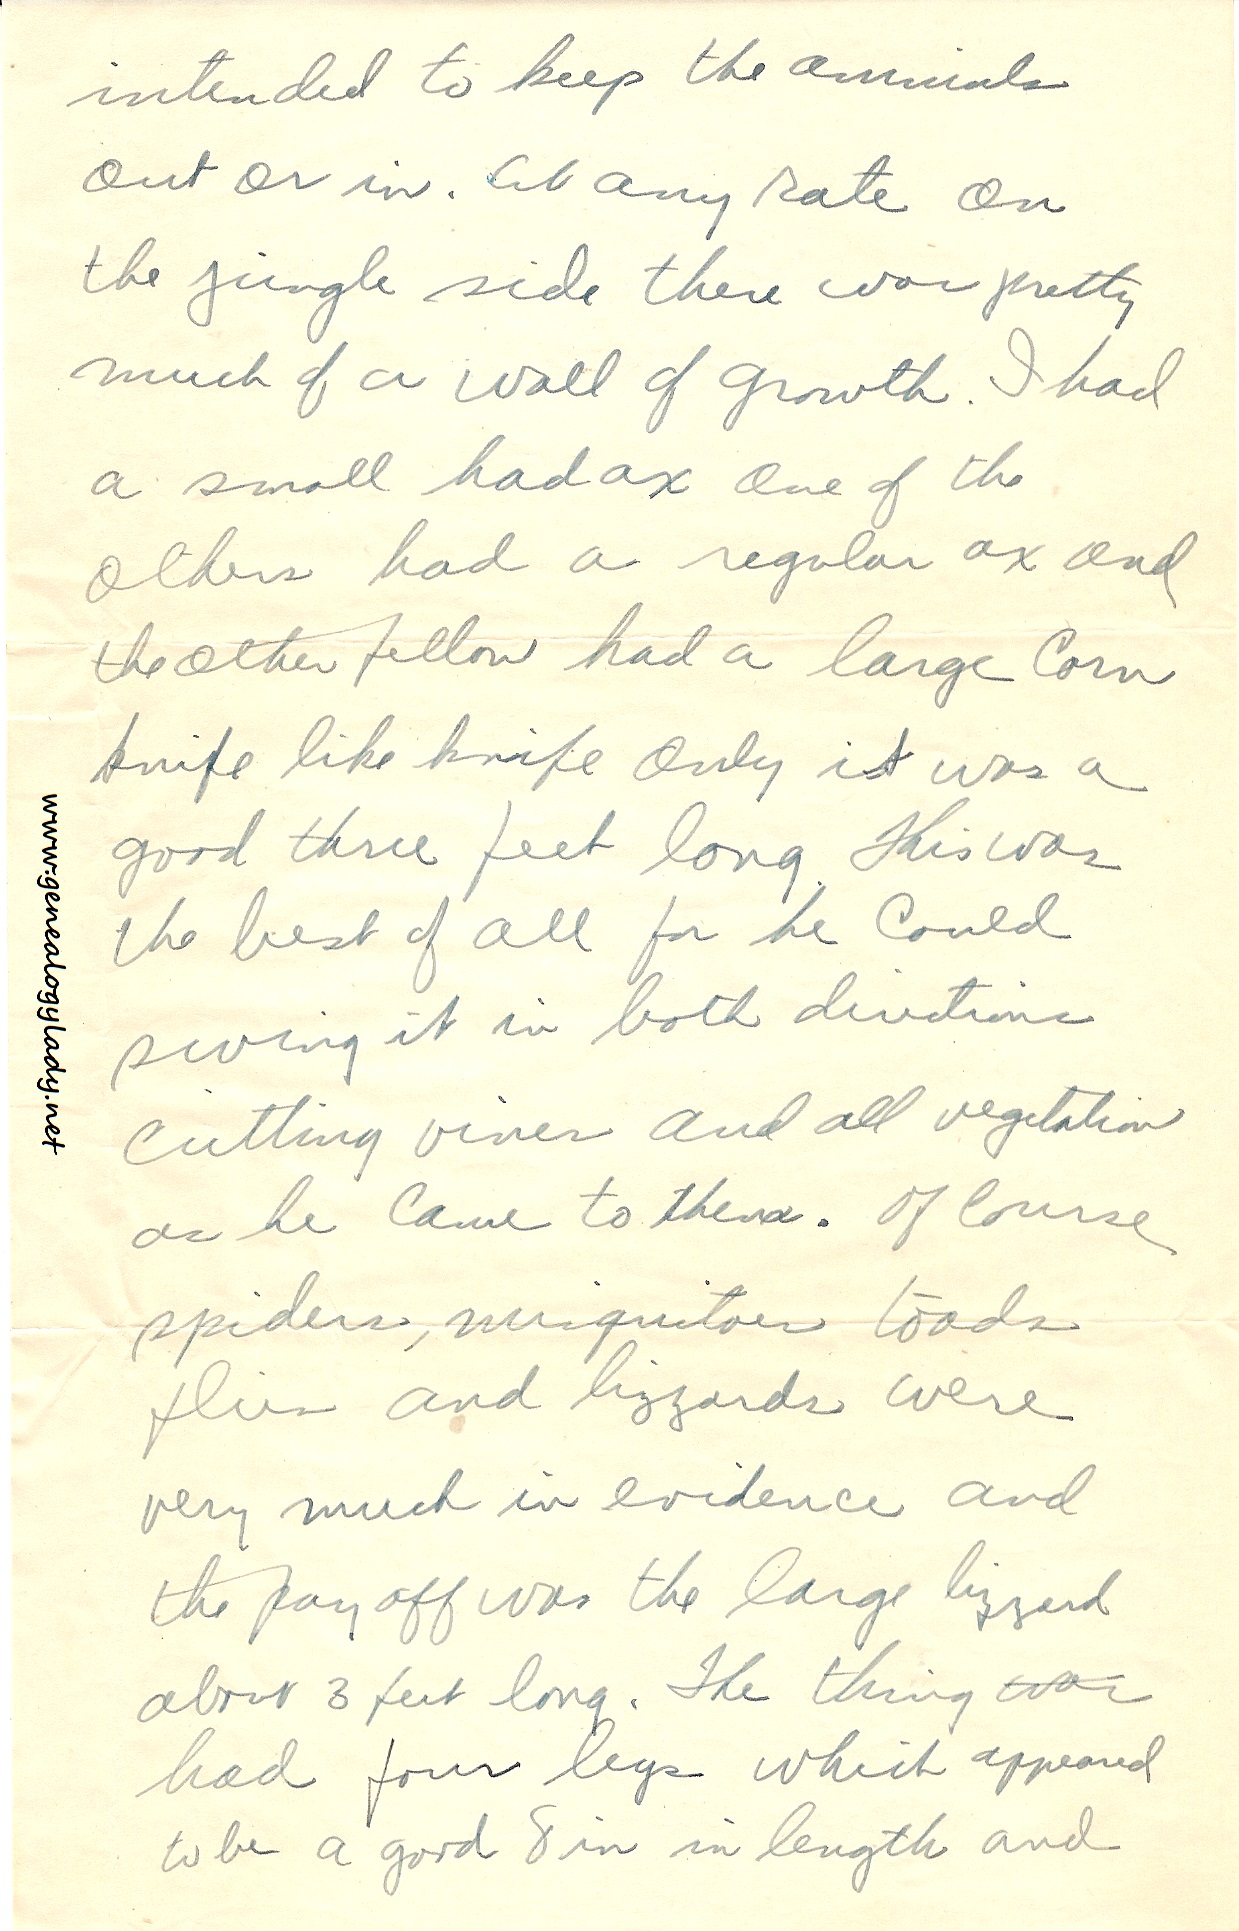 intended to keep the animals
out or in. At any rate on
the jungle side there was pretty
much of a wall of growth. I had
a small hadax one of the
others had a regular ax and
the other fellow had a large corn
knife like knife only it was a
good three feet long. This was
the best of all for he could
swing it in both directions
cutting vines and all vegetation
as he came to them. Of course
spiders, misquitoes toads
flies and lizzards were
very much in evidence and
the pay off was the large lizzard
about 3 feet long. The thing was
had four legs which appeared
to be a good 8 in in length and
www.genealogylady.net